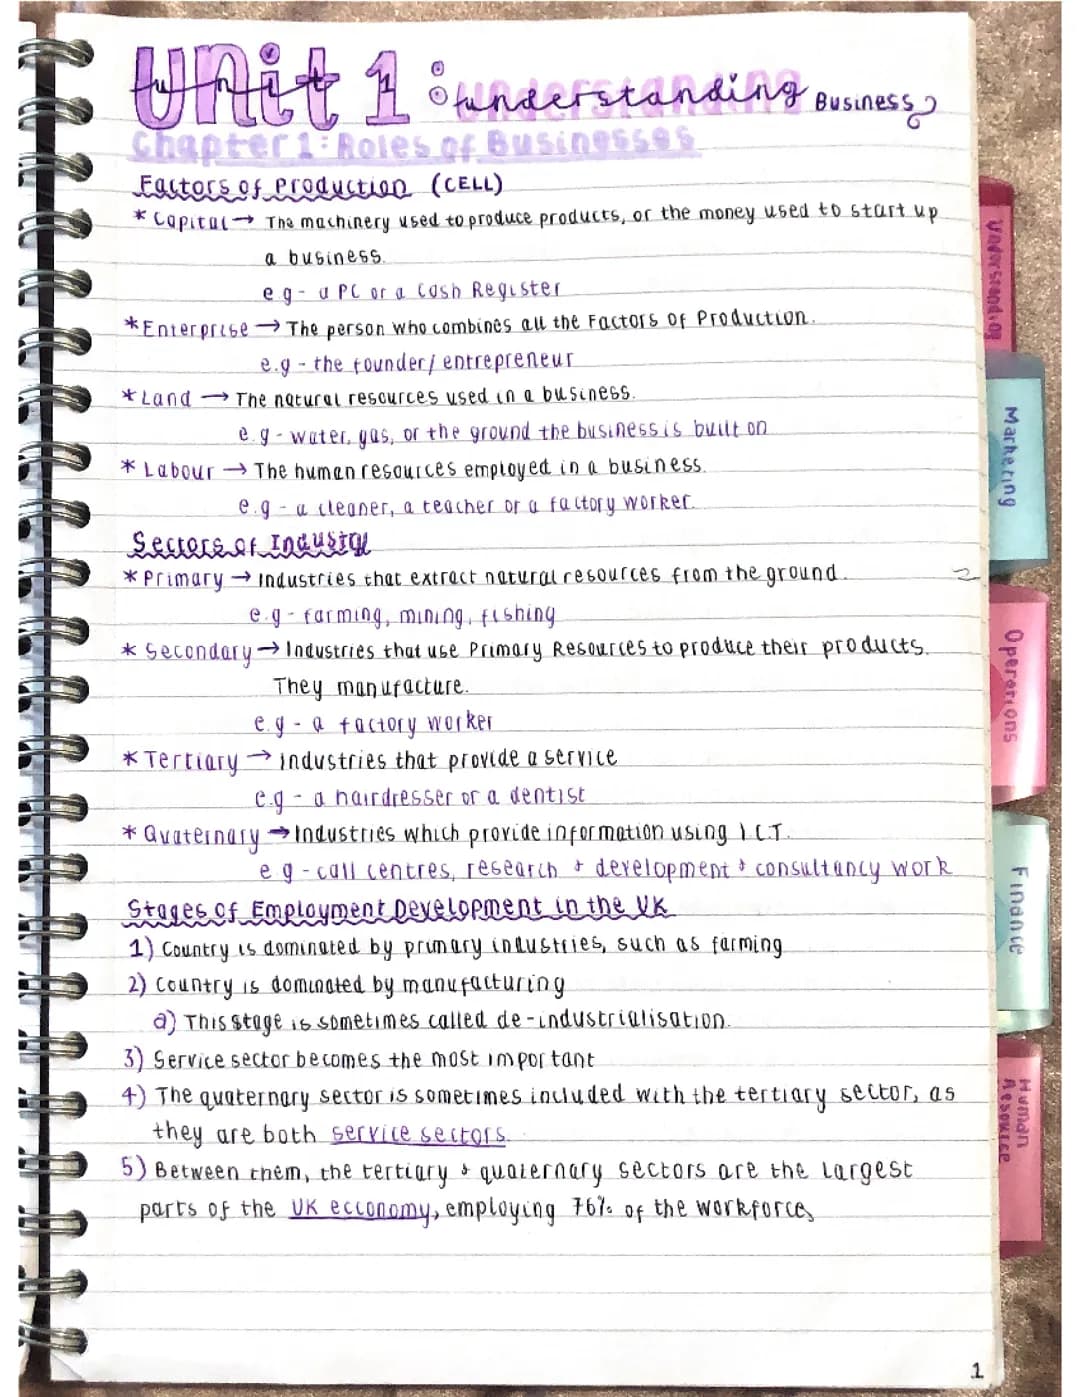 Unit 1: understanding Business
Chapter 1: Roles of Businesses
Factors of Production (CELL)
* Capital → The machinery used to produce products, or the money used to start up
a business.
e.g - a PC or a Cash Register
* Enterprise → The person who combines all the Factors of Production.
e.g - the founder/entrepreneur
* Land → The natural resources used in a business.
e.g - water, gas, or the ground the business is built on
* Labour → The human resources employed in a business.
e.g - a cleaner, a teacher or a factory worker.
Sectors of Industry
* Primary → Industries that extract natural resources from the ground.
e.g - farming, mining, fishing
* Secondary → Industries that use Primary Resources to produce their products.
They manufacture.
e.g - a factory worker
* Tertiary → Industries that provide a service
e.g - a hairdresser or a dentist
* Quaternary → Industries which provide information using I.C.T.
e.g - call centres, research + development + consultancy work
Stages of Employment Development in the UK
1) Country is dominated by primary industries, such as farming
2) Country is dominated by manufacturing
a) This stage is sometimes called de-industrialisation.
3) Service sector becomes the most important
4) The quaternary sector is sometimes included with the tertiary sector, as
they are both service sectors.
5) Between them, the tertiary + quaternary sectors are the largest
parts of the UK ecconomy, employing 76% of the workforce
1
Understanding
Marketing
Operations
Finance
Human
Resource